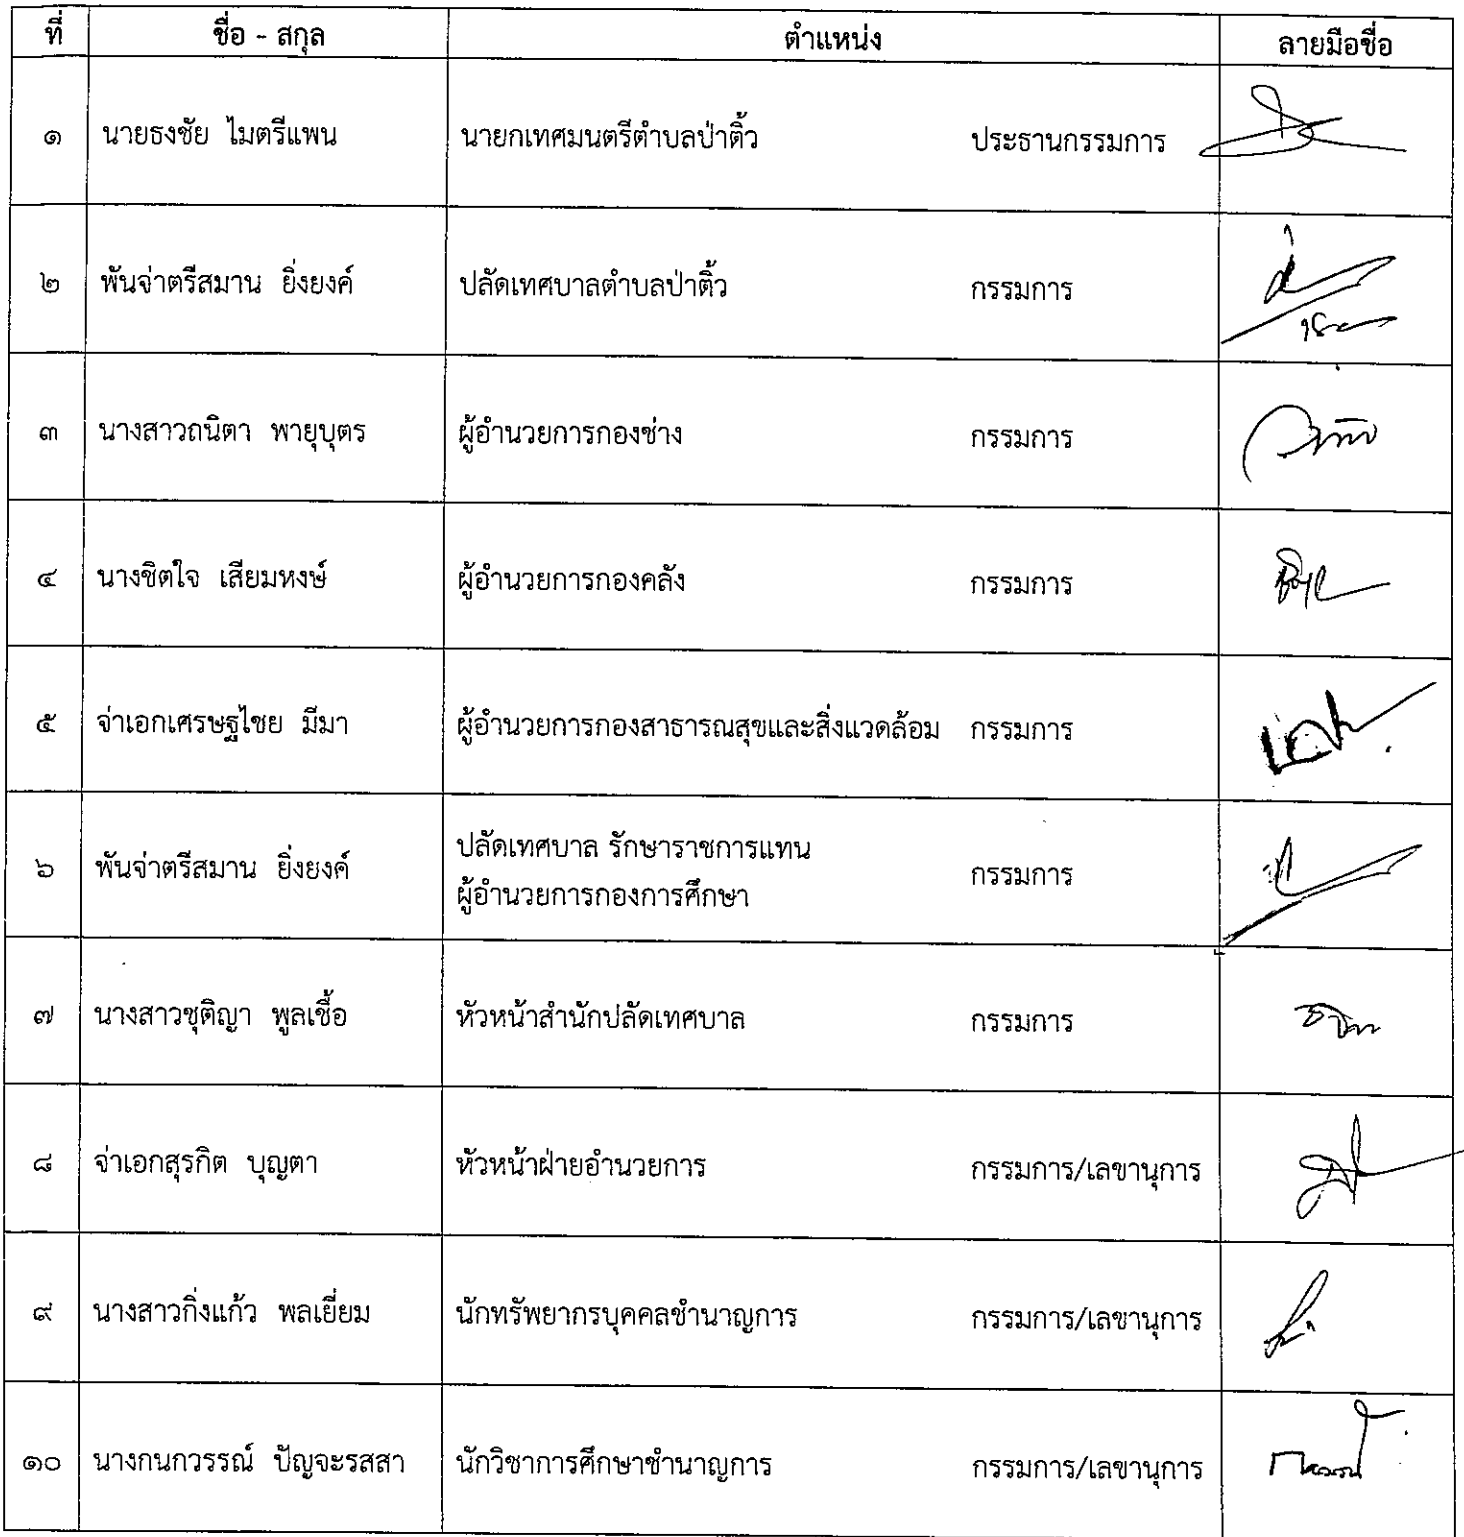 ที่ ชื่อ - สกุล ตำแหน่ง ลายมือชื่อ
๑ นายธงชัย ไมตรีแพน นายกเทศมนตรีตำบลป่าติ้ว ประธานกรรมการ
๒ พันจ่าตรีสมาน ยิ่งยงค์ ปลัดเทศบาลตำบลป่าติ้ว กรรมการ
๓ นางสาวถนิตา พายุบุตร ผู้อำนวยการกองช่าง กรรมการ
๔ นางชิตใจ เสียมหงษ์ ผู้อำนวยการกองคลัง กรรมการ
๕ จ่าเอกเศรษฐไชย มีมา ผู้อำนวยการกองสาธารณสุขและสิ่งแวดล้อม กรรมการ
๖ พันจ่าตรีสมาน ยิ่งยงค์ ปลัดเทศบาล รักษาราชการแทน
ผู้อำนวยการกองการศึกษา กรรมการ
๗ นางสาวชุติญา พูลเชื้อ หัวหน้าสำนักปลัดเทศบาล กรรมการ
๘ จ่าเอกสุรกิต บุญตา หัวหน้าฝ่ายอำนวยการ กรรมการ/เลขานุการ
๙ นางสาวกิ่งแก้ว พลเยี่ยม นักทรัพยากรบุคคลชำนาญการ กรรมการ/เลขานุการ
๑๐ นางกนกวรรณ์ ปัญจะรสสา นักวิชาการศึกษาชำนาญการ กรรมการ/เลขานุการ